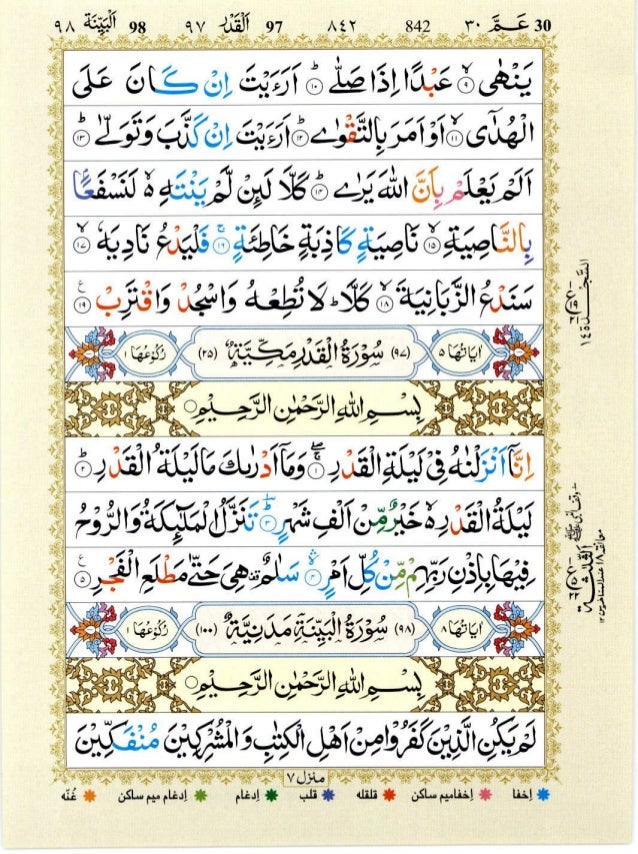 ٣٠ عَـمَّ 30 842 ٨٤٢ 97 اَلْقَدْر ٩٧ 98 اَلْبَيِّنَة ٩٨
يَنْهٰى ۙ﴿۹﴾ عَبْدًا اِذَا صَلّٰى ؕ﴿۱۰﴾ اَرَءَيْتَ اِنْ كَانَ عَلَى
الْهُدٰٓى ۙ﴿۱۱﴾ اَوْ اَمَرَ بِالتَّقْوٰى ؕ﴿۱۲﴾ اَرَءَيْتَ اِنْ كَذَّبَ وَتَوَلّٰى ؕ﴿۱۳﴾
اَلَمْ يَعْلَمْ بِاَنَّ اللّٰهَ يَرٰى ؕ﴿۱۴﴾ كَلَّا لَئِنْ لَّمْ يَنْتَهِ ۙ۬ لَنَسْفَعًۢا
بِالنَّاصِيَةِ ۙ﴿۱۵﴾ نَاصِيَةٍ كَاذِبَةٍ خَاطِئَةٍ ۚ﴿۱۶﴾ فَلْيَدْعُ نَادِيَهٗ ۙ﴿۱۷﴾
سَنَدْعُ الزَّبَانِيَةَ ۙ﴿۱۸﴾ كَلَّا ؕ لَا تُطِعْهُ وَاسْجُدْ وَاقْتَرِبْ ﴿۱۹﴾ ع
اَلسَّجْدَة ١٤
اٰيَاتُهَا ٥ (٩٧) سُوْرَةُ الْقَدْرِ مَكِّيَّةٌ (٢٥) رُكُوْعُهَا ١
بِسْمِ اللّٰهِ الرَّحْمٰنِ الرَّحِيْمِ
اِنَّاۤ اَنْزَلْنٰهُ فِيْ لَيْلَةِ الْقَدْرِ ۚۖ﴿۱﴾ وَمَاۤ اَدْرٰىكَ مَا لَيْلَةُ الْقَدْرِ ؕ﴿۲﴾
لَيْلَةُ الْقَدْرِ ۙ۬ خَيْرٌ مِّنْ اَلْفِ شَهْرٍ ؕ﴿۳﴾ تَنَزَّلُ الْمَلٰٓئِكَةُ وَالرُّوْحُ
فِيْهَا بِاِذْنِ رَبِّهِمْ مِّنْ كُلِّ اَمْرٍ ۙۛ﴿۴﴾ سَلٰمٌ ۛ هِيَ حَتّٰى مَطْلَعِ الْفَجْرِ ﴿۵﴾ ع
اٰيَاتُهَا ٨ (٩٨) سُوْرَةُ الْبَيِّنَةِ مَدَنِيَّةٌ (١٠٠) رُكُوْعُهَا ١
بِسْمِ اللّٰهِ الرَّحْمٰنِ الرَّحِيْمِ
لَمْ يَكُنِ الَّذِيْنَ كَفَرُوْا مِنْ اَهْلِ الْكِتٰبِ وَالْمُشْرِكِيْنَ مُنْفَكِّيْنَ
منزل ٧
اِخفا اِخفامیم ساکن قلقله قلب اِدغام اِدغام میم ساکن غُنّه